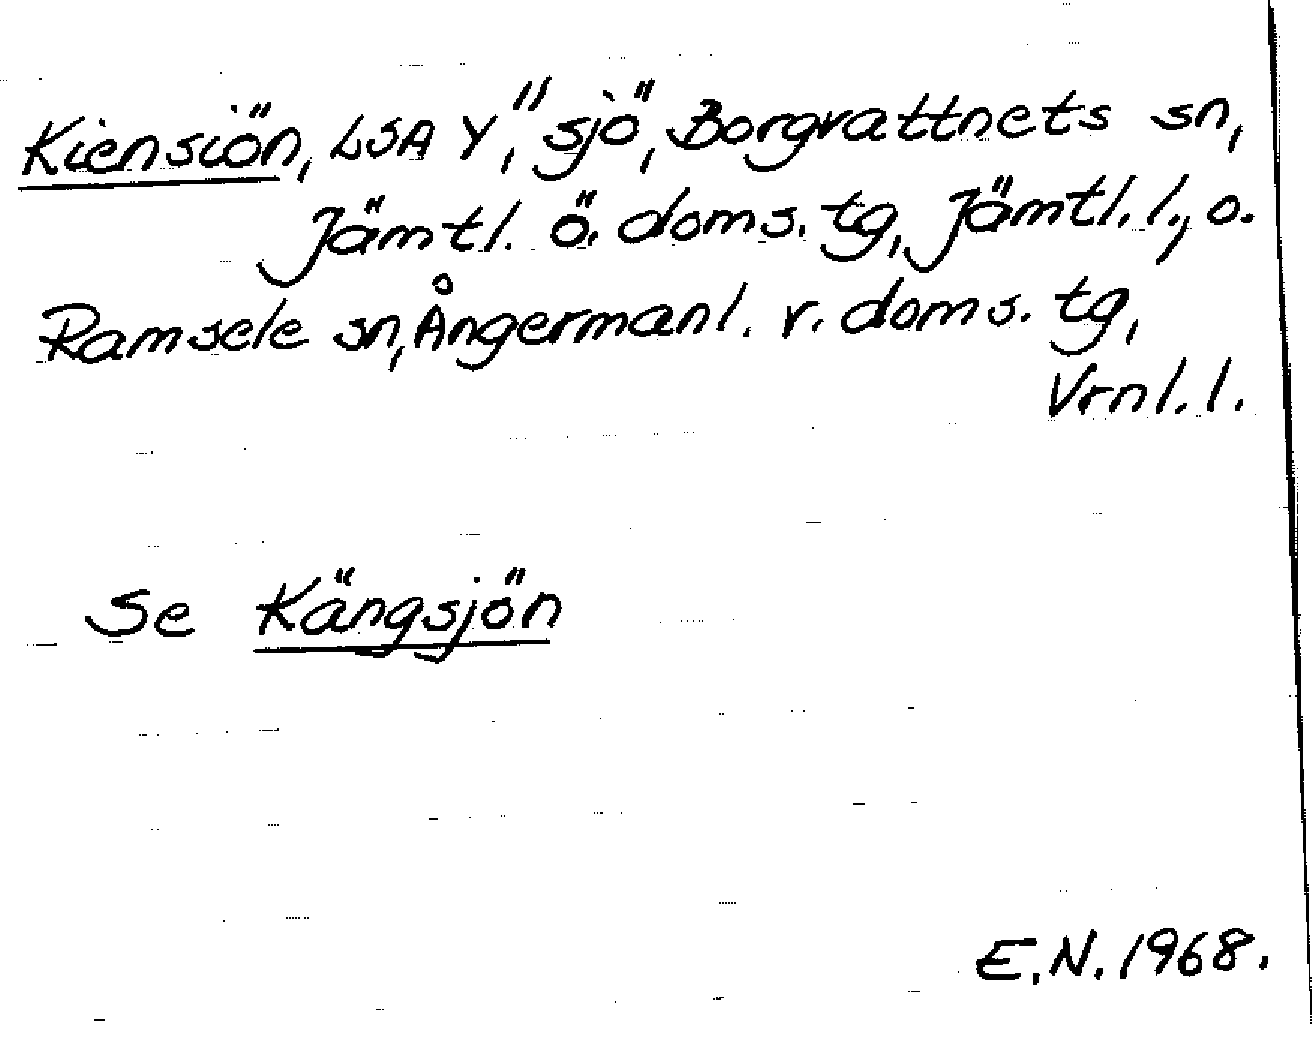 Kiensiön, LSA Y, "sjö", Borgvattnets sn,
Jämtl. ö. doms. tg, Jämtl. l., o.
Ramsele sn, Ångermanl. v. doms. tg,
Vrnl. l.
Se Kängsjön
E.N. 1968.